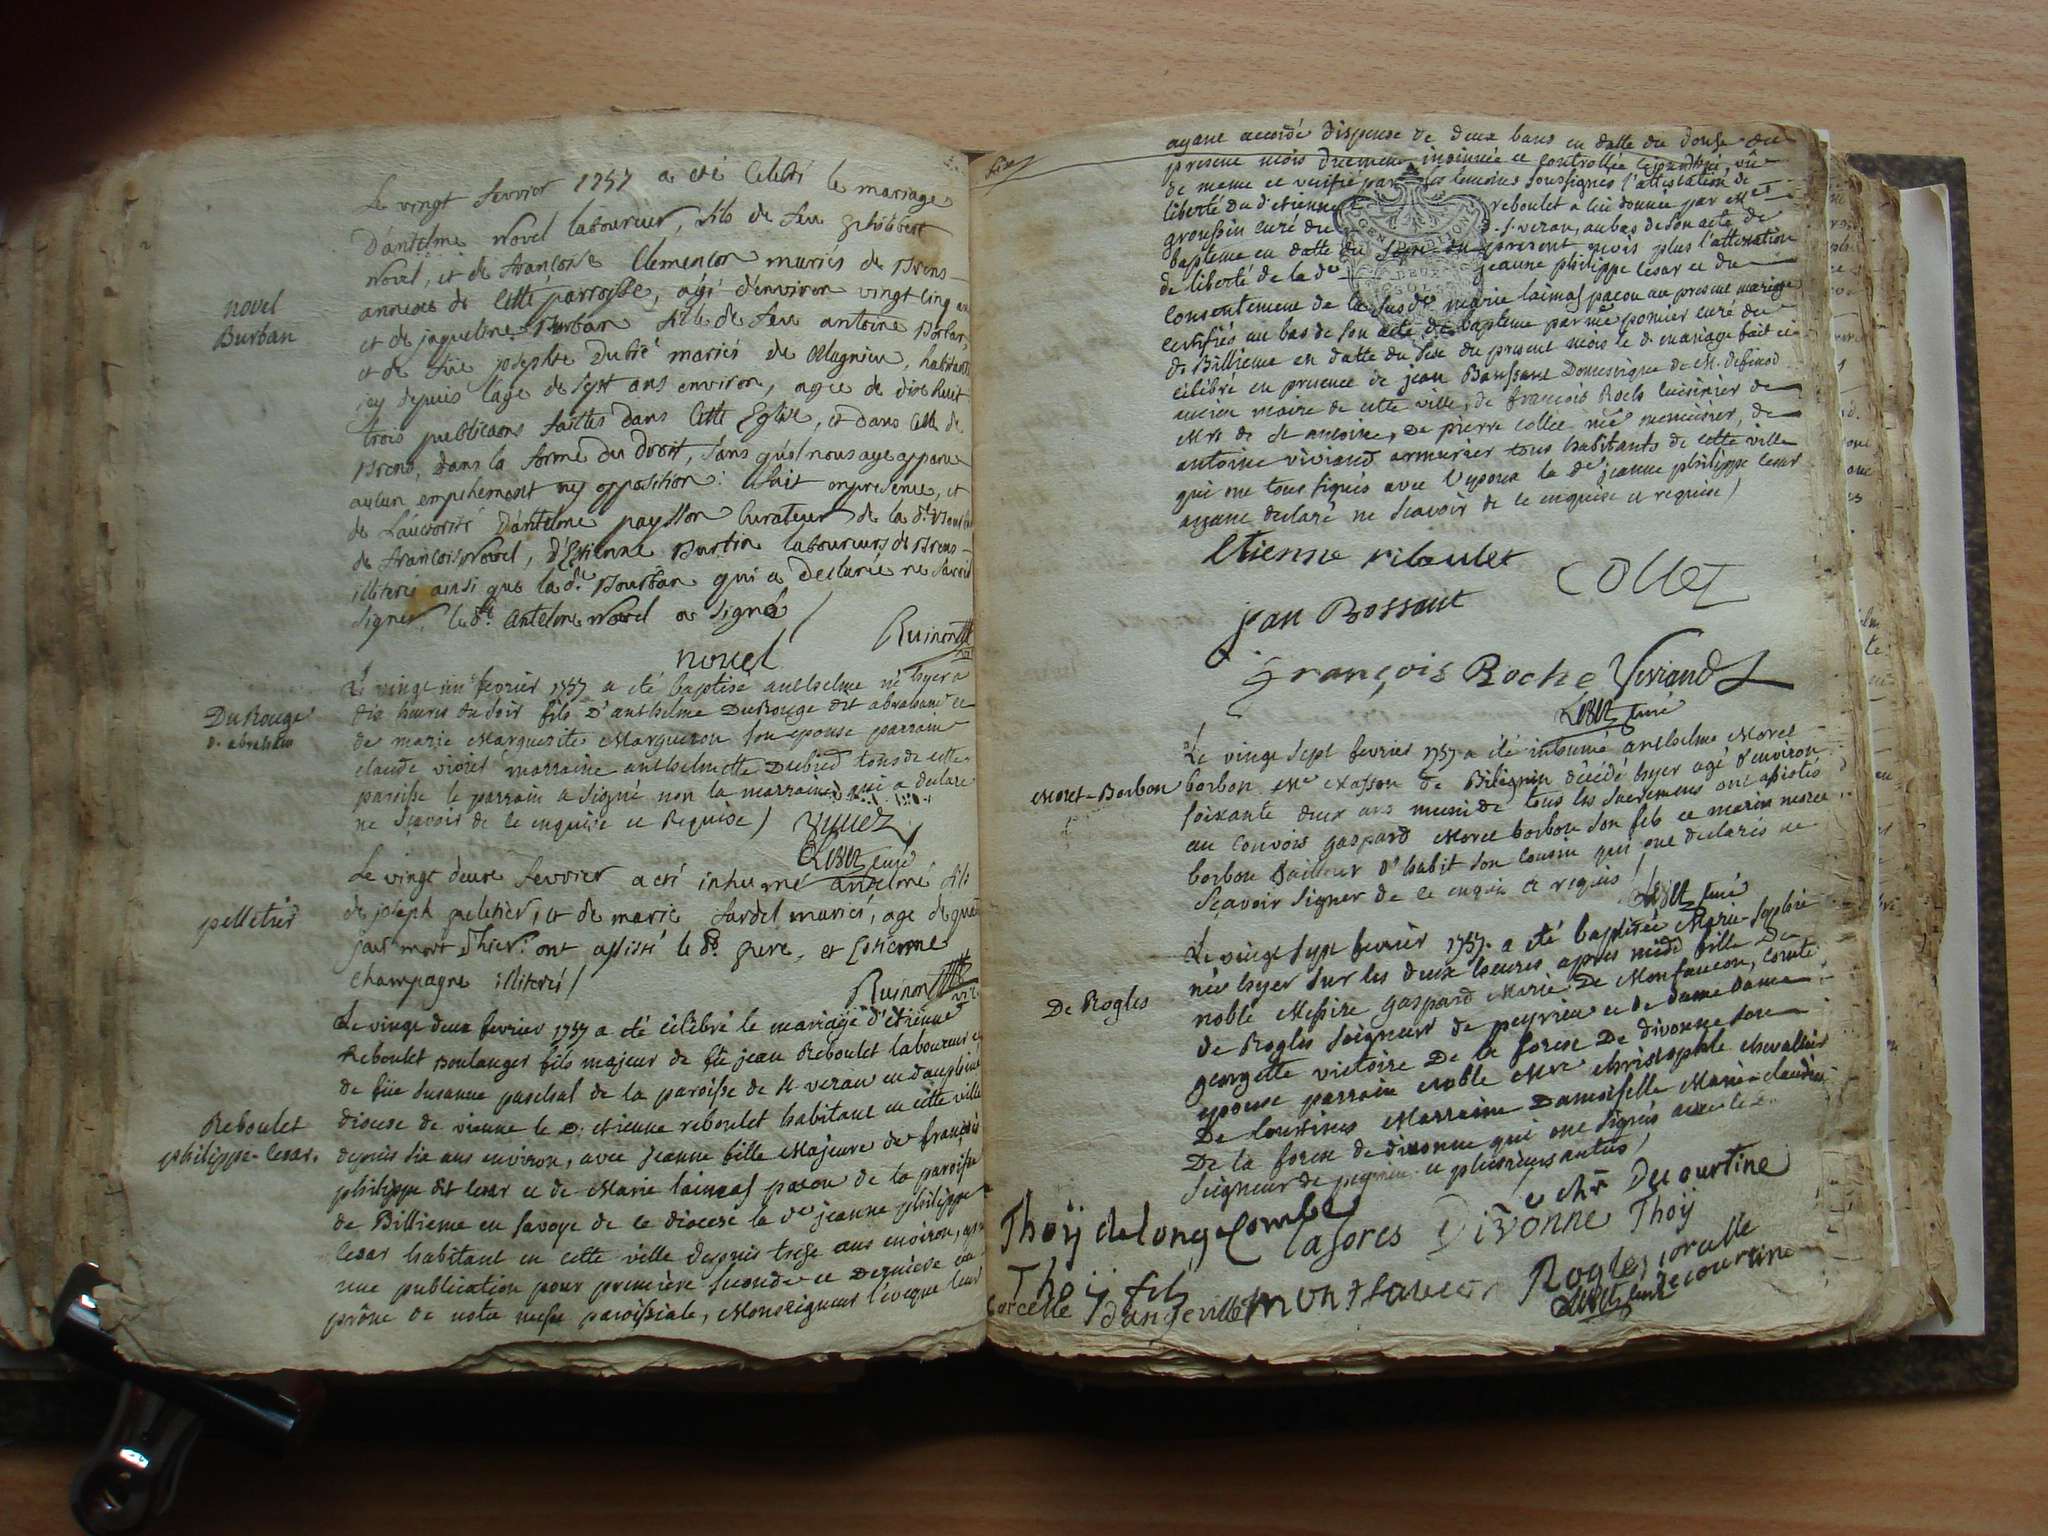 Le vingt fevrier 1757 a eté celebré le mariage
D'antelme Novel laboureur, fils de feu philibert
Novel, et de françoise Clemençon mariés de Brens
annexe de cette parroisse, agé d'environ vingt cinq ans
novel
Burban
et de jaqueline Burban fille de feu antoine Burban,
et de feue josephte Dubié mariés de Magnieu, habitante
icy depuis l'age de sept ans environ, agée de dix huit
trois publicaons faittes dans cette Eglise, et dans celle de
Brens, dans la forme du droit, sans qu'il nous aye apparu
aucun empechement ny opposition: fait en presence, et
de l'authorité D'antelme paysson Curateur de la d.
de françois Novel, d'Estienne Burtin laboureurs de Brens
illiterés ainsi que la d.e Bourban qui a declarée ne sçavoir
signer, le d.t antelme Novel a signé /
novel
Rusinon
vic.
Le vingt un fevrier 1757 a été baptisé anthelme né hyer a
DuRouge
d. abraham
dix heures du soir fils D'anthelme DuRouge dit abraham et
de marie Marguerite Margueron son epouse parrain
claude violet marraine anthelmette Dubied tous de cette
paroisse le parrain a signé non la marraine qui a declaré
ne sçavoir de ce enquise et Requise /
curé
Le vingt deux fevrier a eté inhumé antelme fils
pelletier
de joseph peletier, et de marie fardel mariés, agé de quatre
jours mort d'hier: ont assisté le d.t pere, et Estienne
champagne illiterés /
Rusinon
vic.
Le vingt deux fevrier 1757 a eté célébré le mariage d'étienne
Reboulet Boulanger fils majeur de feu jean Reboulet laboureur et
de füe Susanne paschal de la paroisse de St veran en dauphiné
Reboulet
philippe-Cesar.
diocese de vienne le d. etienne reboulet habitant en cette ville
depuis six ans environ, avec Jeanne fille Majeure de françois
philippe dit Cesar et de Marie laimas pacou de la paroisse
de Billieme en Savoye de ce diocese la d.e jeanne philippe
Cesar habitant en cette ville depuis treze ans environ, apres
une publication pour première seconde et Dernière au
prône de notre messe paroissiale, Monseigneur l'éveque leur
ayant accordé dispense de deux bans en datte du douze du
present mois duement insinuée et controllée le vû
de meme et verifié par les temoins soussignés l'attestation de
liberté du d. etienne reboulet a lui donnée par M.re
groussin curé du d. S. veran, au bas de son acte de
bapteme en datte du du present mois plus l'attestation
de liberté de la d.e jeanne philippe Cesar et du
GEN DEUX SOLS
consentement de la susd.e marie laimas pacou au present mariage
certifiés au bas de son acte de bapteme par m.re pomier curé du
d. Billieme en datte du seze du present mois le d. mariage fait et
célébré en presence de jean Baussant Domestique de M. defincod
ancien maire de cette ville, de françois Roch cuisinier de
M.rs de St antoine, De pierre collet m.e menuisier, de
antoine viviand armurier tous habitants de cette ville
qui ont tous signés avec l'epoux la d.e jeanne philippe Cesar
ayant declaré ne sçavoir de ce enquise et requise /
Etienne riboulet
COlleT
jean Bossant
françois Roche Viviand
curé
Le vingt sept fevrier 1757 a été inhumé anthelme Moret
Moret-Borbon
borbon M.e masson de Bilignin décédé hyer agé d'environ
soixante deux ans muni de tous les Sacremens ont assistés
au convois gaspard Moret borbon son fils et marin moret
borbon tailleur d'habit son cousin qui ont declarés ne
sçavoir signer de ce enquis et requis /
curé
Le vingt sept fevrier 1757. a été baptisée Marie-Sophie
née hyer sur les deux heures apres midi fille De
De Rogles
noble Messire gaspard Marie De Monfaucon, comte
de Rogles Seigneur de peyrieu et de dame dame
georgette victoire De la forest De divonne son
epouse parrain Noble M.re christophle chevallier
De Courtines Marraine Damoiselle Marie-claudine
De la forest de divonne qui ont signés avec le d.
Seigneur de peyrieu et plusieurs autres /
ch.r Decourtine
Thoÿ de longecombe
lafores Divonne Thoÿ
Thoÿ fils
Rogles corcelle
corcelle d'angeville montfaucon
decourtine
curé